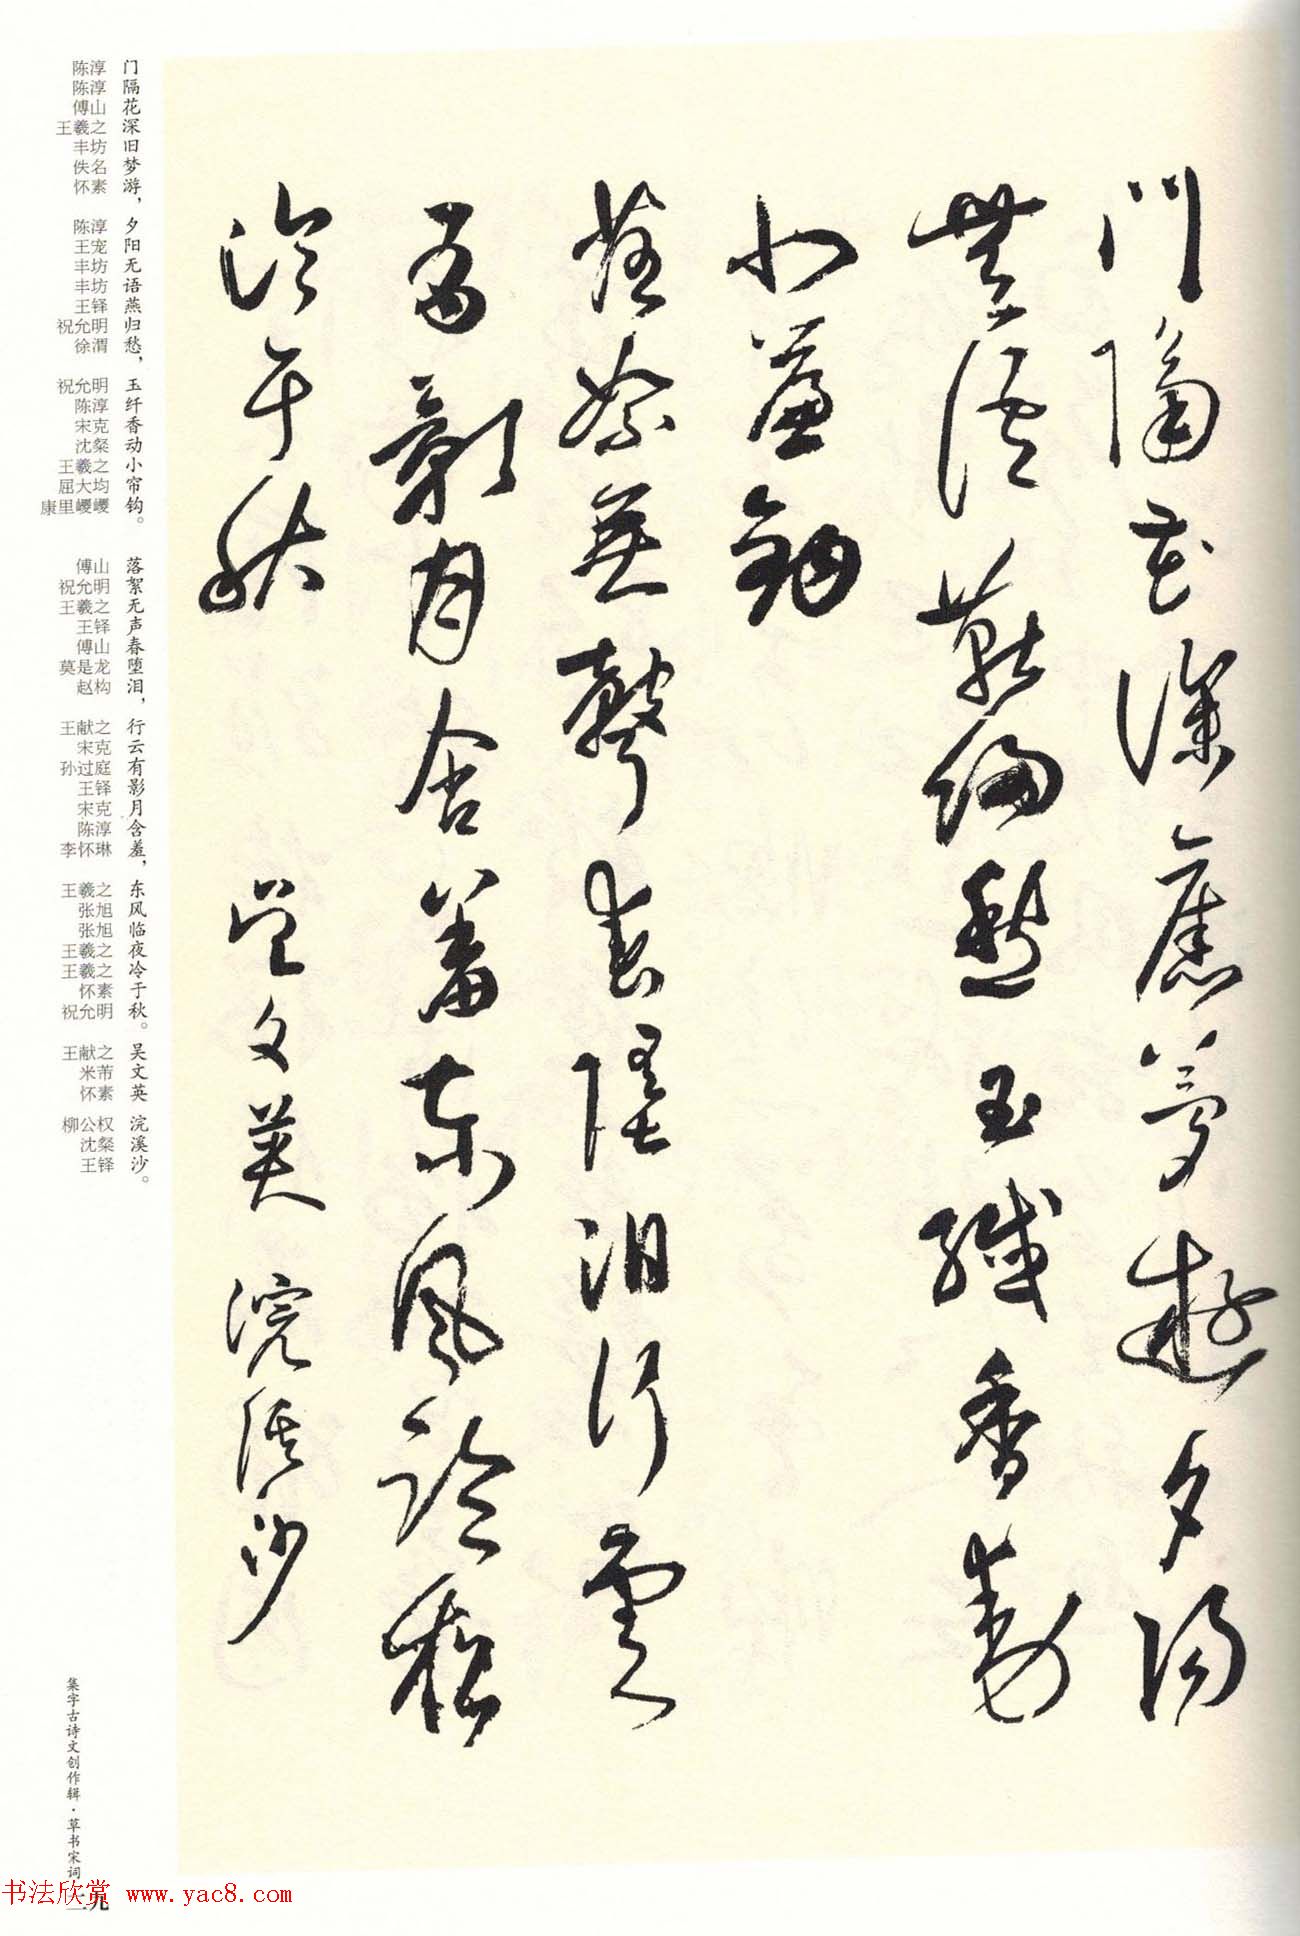 門隔花深舊夢遊夕陽
無語燕歸愁玉纖香動
小簾鉤
落絮無聲春墮淚行雲
有影月含羞東風臨夜
冷于秋 吳文英 浣溪沙
门隔花深旧梦游，夕阳无语燕归愁，玉纤香动小帘钩。 落絮无声春堕泪，行云有影月含羞，东风临夜冷于秋。 吴文英 浣溪沙。
陈淳 陈淳 傅山 王羲之 丰坊 佚名 怀素 陈淳 王宠 丰坊 丰坊 王铎 祝允明 徐渭 祝允明 陈淳 宋克 沈粲 王羲之 屈大均 康里巎巎 傅山 祝允明 王羲之 王铎 傅山 莫是龙 赵构 王献之 宋克 孙过庭 王铎 宋克 陈淳 李怀琳 王羲之 张旭 张旭 王羲之 王羲之 怀素 祝允明 王献之 米芾 怀素 柳公权 沈粲 王铎
集字古诗文创作辑·草书宋词
二九
书法欣赏 www.yac8.com